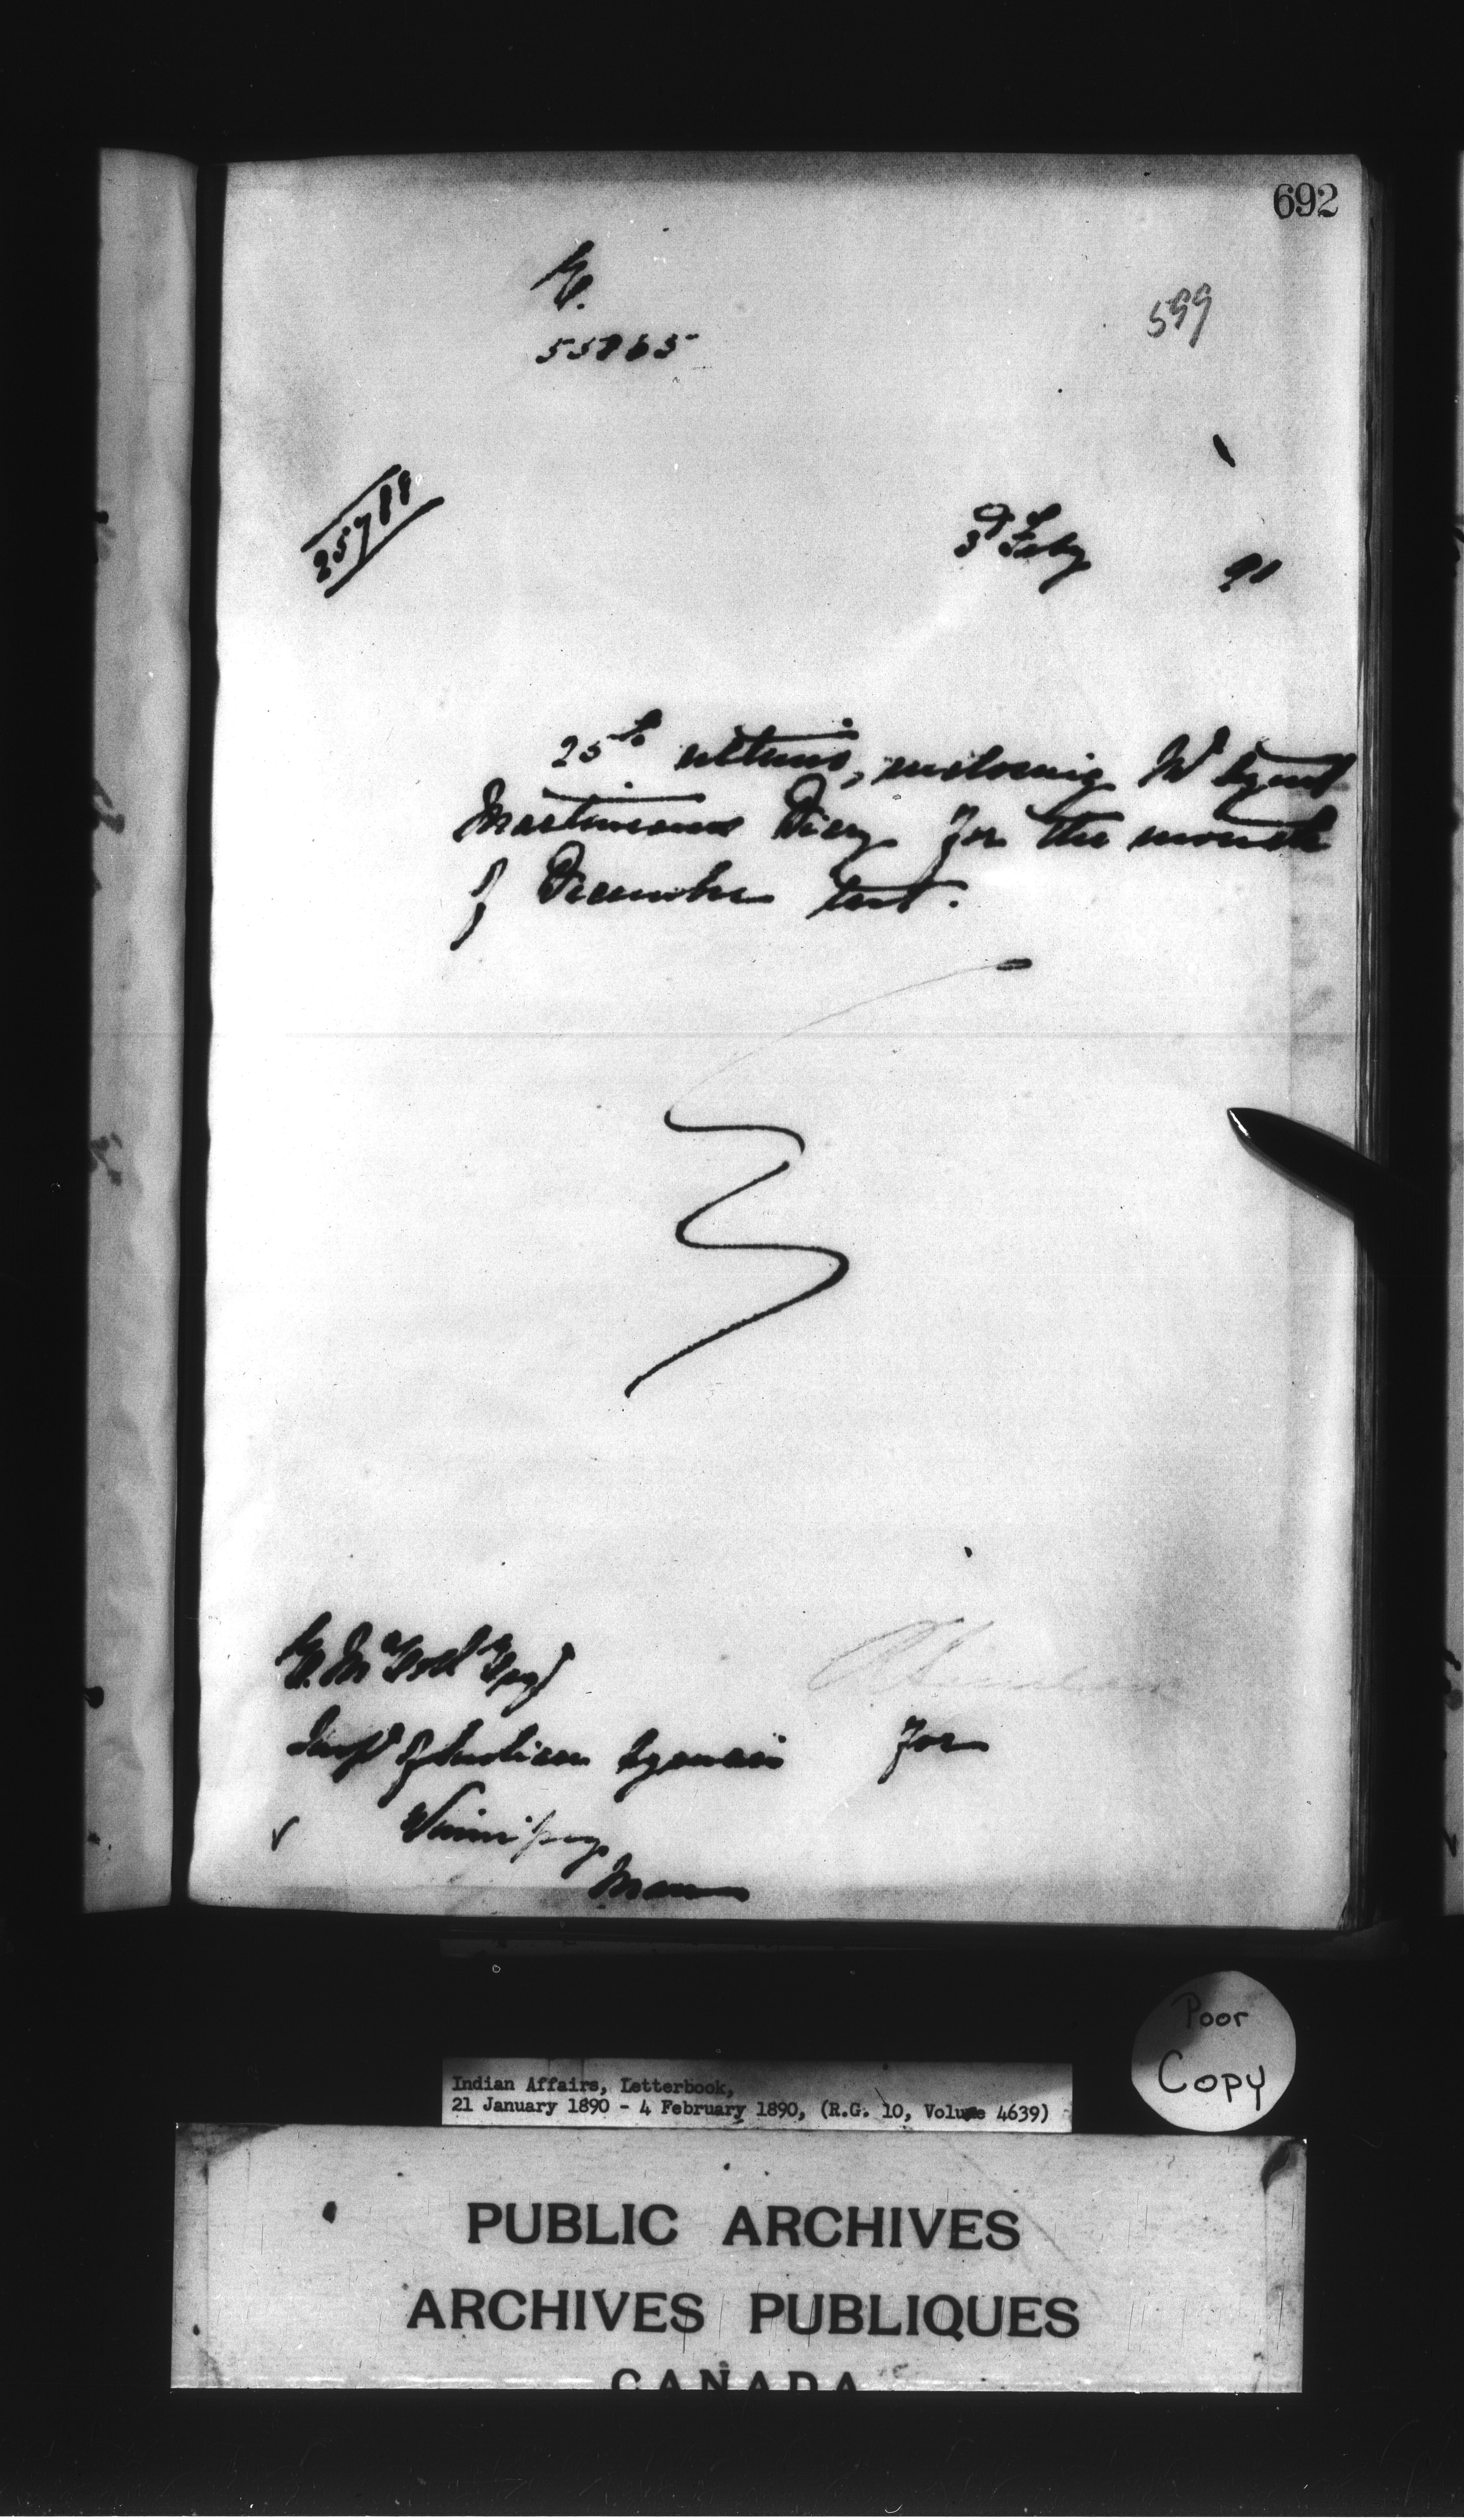 692
E.
599
55865
25788
3d Feby 90
25th ultimo, enclosing Mr Agent
Martineau's Diary for the month
of December last.
E. McColl Esq
Inspr of Indian Agencies for
Winnipeg
Man
Poor
Copy
Indian Affairs, Letterbook,
21 January 1890 - 4 February 1890, (R.G. 10, Volume 4639)
PUBLIC ARCHIVES
ARCHIVES PUBLIQUES
CANADA